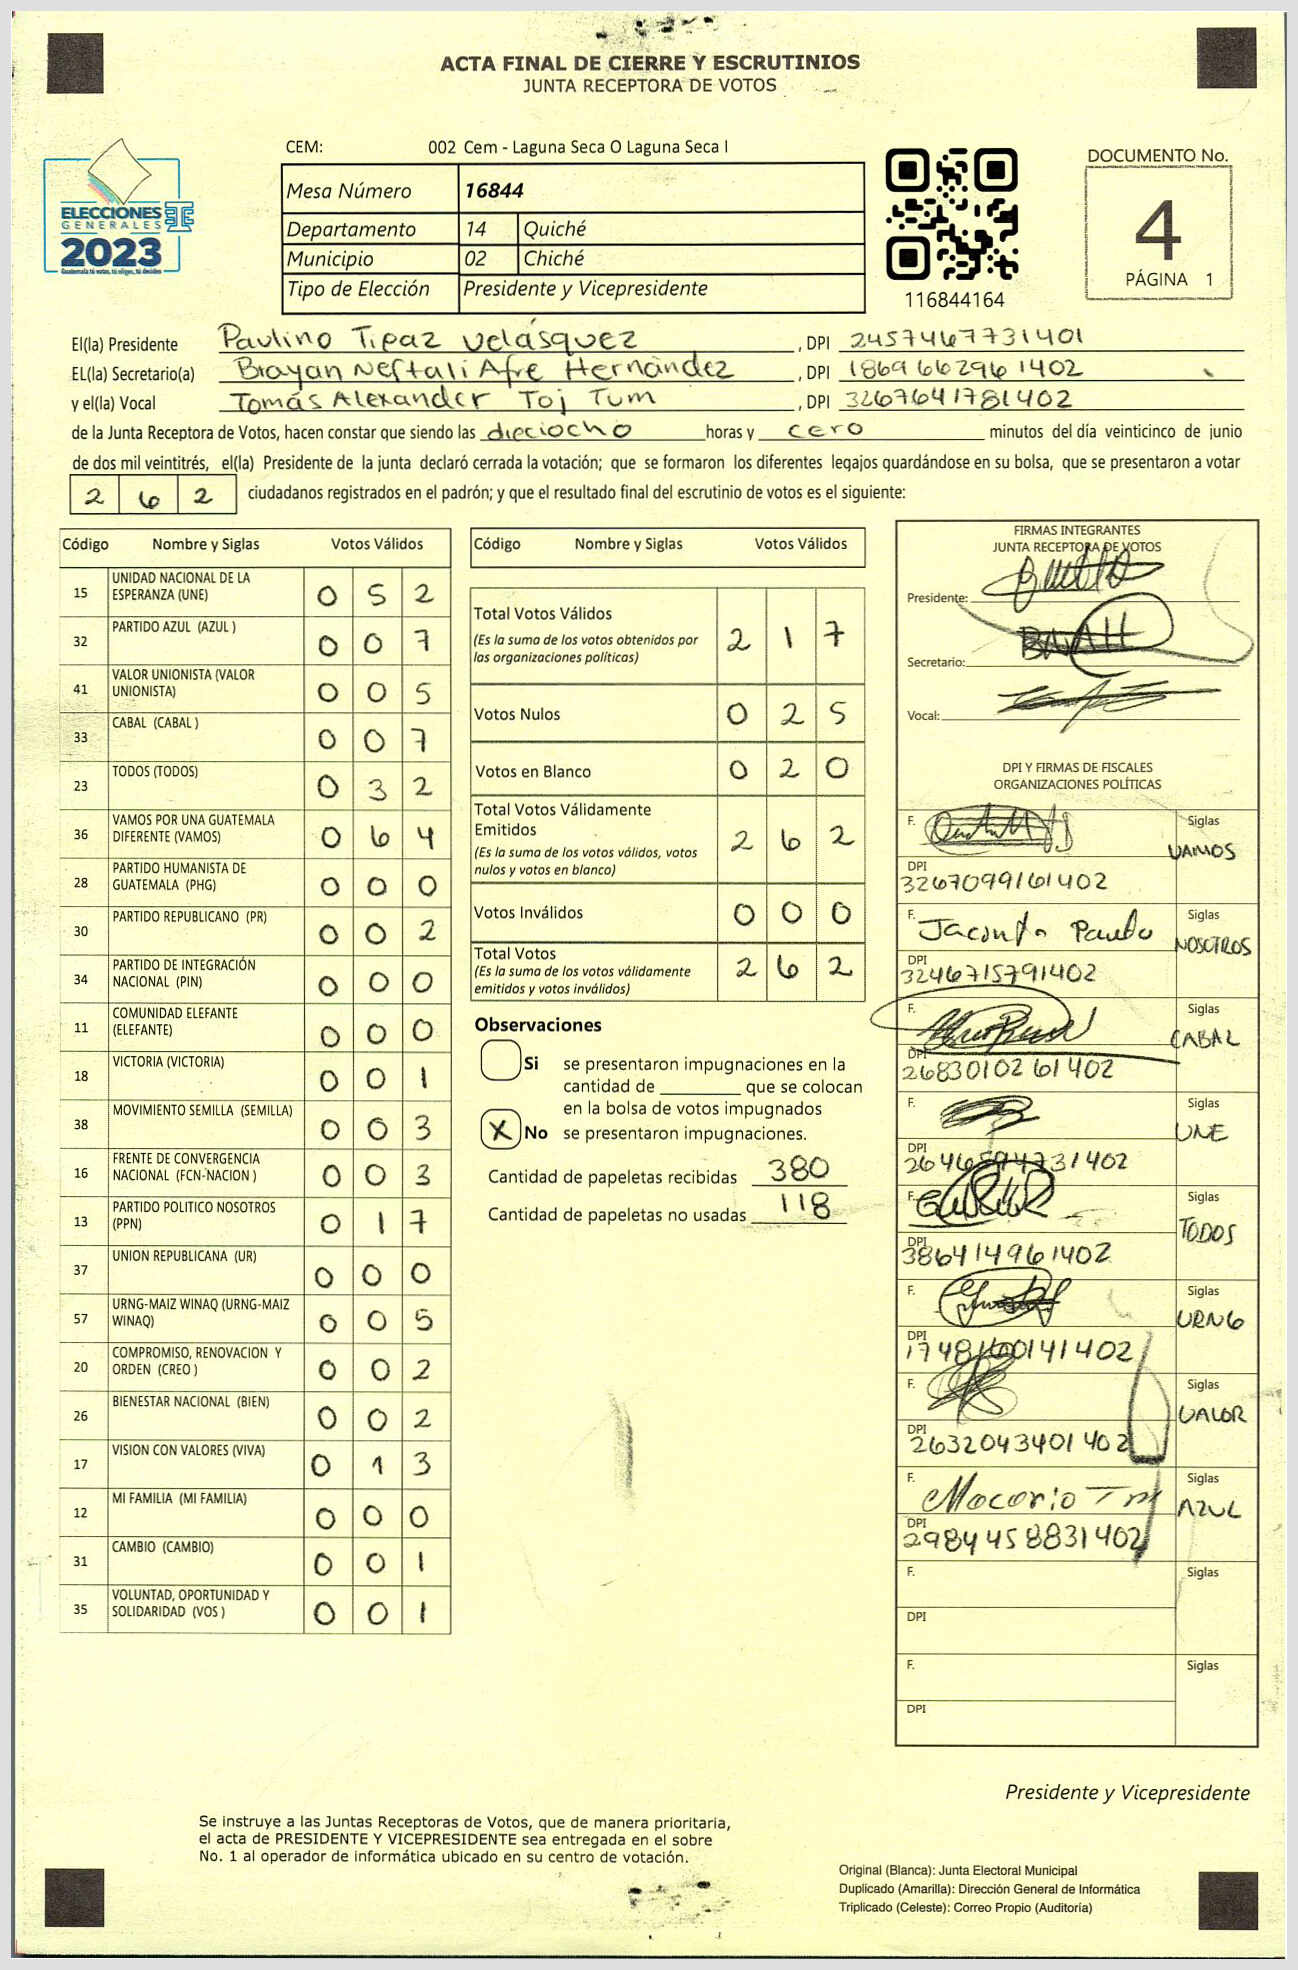 ACTA FINAL DE CIERRE Y ESCRUTINIOS
JUNTA RECEPTORA DE VOTOS
ELECCIONES
GENERALES
2023
Guatemala tú votas, tú eliges, tú decides
CEM: 002 Cem - Laguna Seca O Laguna Seca I
Mesa Número 16844
Departamento 14 Quiché
Municipio 02 Chiché
Tipo de Elección Presidente y Vicepresidente
116844164
DOCUMENTO No.
4
PÁGINA 1
El(la) Presidente Paulino Tipaz Velásquez , DPI 2457467731401
EL(la) Secretario(a) Brayan Neftali Afre Hernández , DPI 1869662961402
y el(la) Vocal Tomás Alexander Toj Tum , DPI 3267641781402
de la Junta Receptora de Votos, hacen constar que siendo las dieciocho horas y cero minutos del día veinticinco de junio
de dos mil veintitrés, el(la) Presidente de la junta declaró cerrada la votación; que se formaron los diferentes legajos guardándose en su bolsa, que se presentaron a votar
2 6 2 ciudadanos registrados en el padrón; y que el resultado final del escrutinio de votos es el siguiente:
Código Nombre y Siglas Votos Válidos
15 UNIDAD NACIONAL DE LA ESPERANZA (UNE) 0 5 2
32 PARTIDO AZUL (AZUL ) 0 0 7
41 VALOR UNIONISTA (VALOR UNIONISTA) 0 0 5
33 CABAL (CABAL ) 0 0 7
23 TODOS (TODOS) 0 3 2
36 VAMOS POR UNA GUATEMALA DIFERENTE (VAMOS) 0 6 4
28 PARTIDO HUMANISTA DE GUATEMALA (PHG) 0 0 0
30 PARTIDO REPUBLICANO (PR) 0 0 2
34 PARTIDO DE INTEGRACIÓN NACIONAL (PIN) 0 0 0
11 COMUNIDAD ELEFANTE (ELEFANTE) 0 0 0
18 VICTORIA (VICTORIA) 0 0 1
38 MOVIMIENTO SEMILLA (SEMILLA) 0 0 3
16 FRENTE DE CONVERGENCIA NACIONAL (FCN-NACION ) 0 0 3
13 PARTIDO POLITICO NOSOTROS (PPN) 0 1 7
37 UNION REPUBLICANA (UR) 0 0 0
57 URNG-MAIZ WINAQ (URNG-MAIZ WINAQ) 0 0 5
20 COMPROMISO, RENOVACION Y ORDEN (CREO ) 0 0 2
26 BIENESTAR NACIONAL (BIEN) 0 0 2
17 VISION CON VALORES (VIVA) 0 1 3
12 MI FAMILIA (MI FAMILIA) 0 0 0
31 CAMBIO (CAMBIO) 0 0 1
35 VOLUNTAD, OPORTUNIDAD Y SOLIDARIDAD (VOS ) 0 0 1
Código Nombre y Siglas Votos Válidos
Total Votos Válidos 2 1 7
(Es la suma de los votos obtenidos por
las organizaciones políticas)
Votos Nulos 0 2 5
Votos en Blanco 0 2 0
Total Votos Válidamente
Emitidos 2 6 2
(Es la suma de los votos válidos, votos
nulos y votos en blanco)
Votos Inválidos 0 0 0
Total Votos 2 6 2
(Es la suma de los votos válidamente
emitidos y votos inválidos)
Observaciones
Si se presentaron impugnaciones en la
cantidad de ________ que se colocan
en la bolsa de votos impugnados
X No se presentaron impugnaciones.
Cantidad de papeletas recibidas 380
Cantidad de papeletas no usadas 118
FIRMAS INTEGRANTES
JUNTA RECEPTORA DE VOTOS
Presidente:
Secretario:
Vocal:
DPI Y FIRMAS DE FISCALES
ORGANIZACIONES POLÍTICAS
F. Siglas VAMOS
DPI 3267099161402
F. Jacinto Siglas NOSOTROS
DPI 3246715791402
F. Siglas CABAL
DPI 2683010261402
F. Siglas UNE
DPI
F. Siglas TODOS
DPI 386414961402
F. Siglas URNG
DPI
F. Siglas VALOR
DPI 2632043401402
F. Macario Siglas AZUL
DPI 2984458831402
F. Siglas
DPI
F. Siglas
DPI
Presidente y Vicepresidente
Se instruye a las Juntas Receptoras de Votos, que de manera prioritaria,
el acta de PRESIDENTE Y VICEPRESIDENTE sea entregada en el sobre
No. 1 al operador de informática ubicado en su centro de votación.
Original (Blanca): Junta Electoral Municipal
Duplicado (Amarilla): Dirección General de Informática
Triplicado (Celeste): Correo Propio (Auditoría)